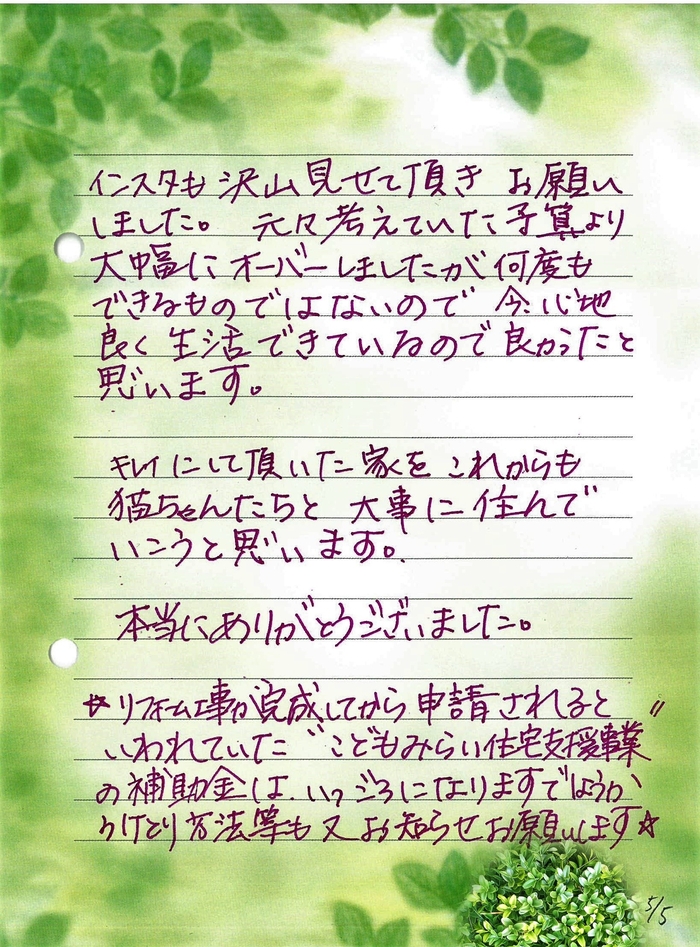 インスタも沢山見せて頂き お願い
しました。 元々考えていた予算より
大幅にオーバーしましたが何度も
できるものではないので 今、心地
良く生活できているので良かったと
思います。
キレイにして頂いた家を これからも
猫ちゃんたちと 大事に住んで
いこうと思います。
本当にありがとうございました。
☆リフォーム工事が完成してから申請されると
いわれていた〝こどもみらい住宅支援事業〟
の補助金は、いつごろになりますでしょうか、
うけとり方法等も又お知らせお願いします☆
5/5